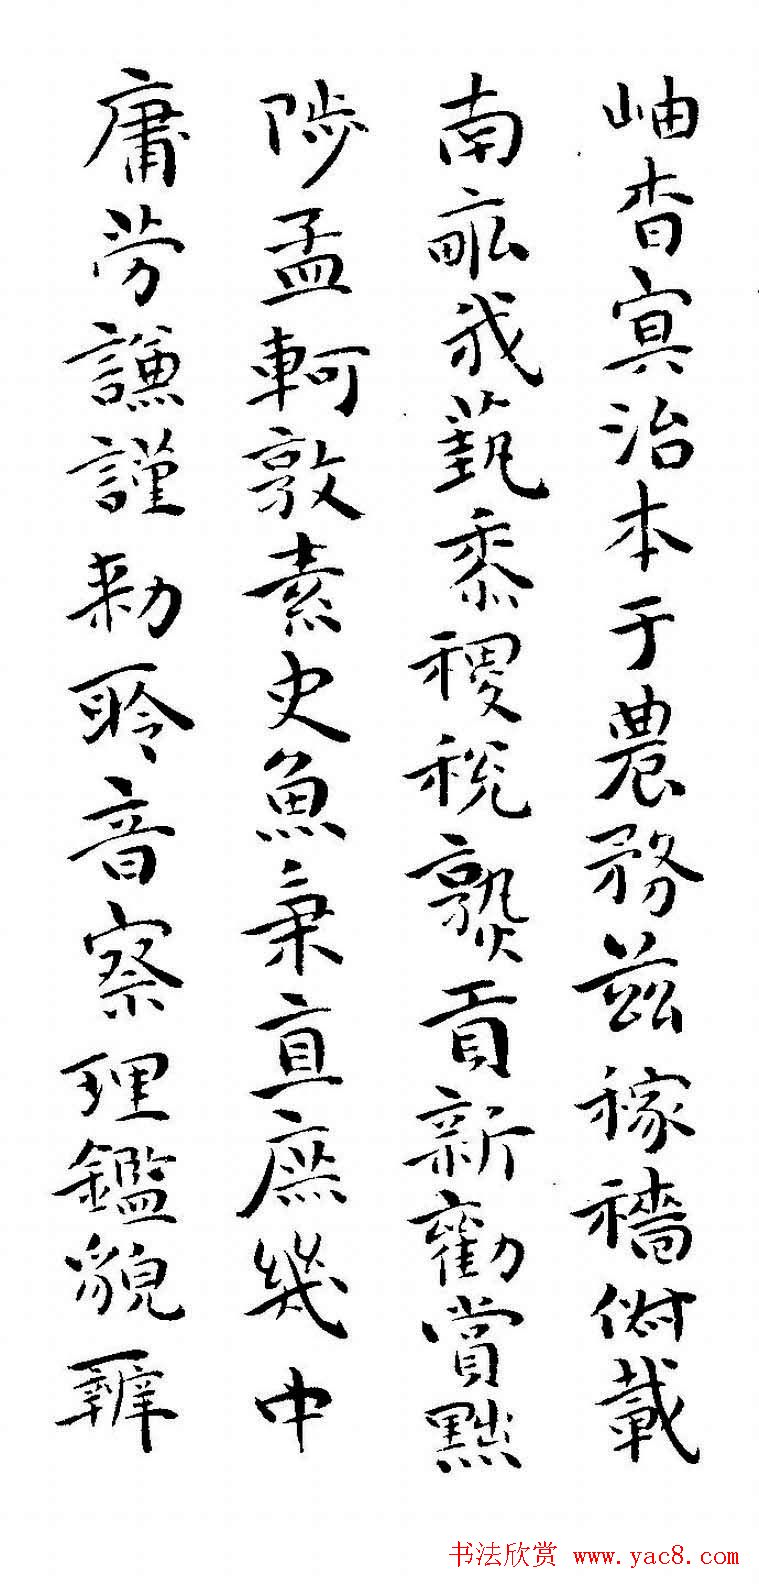 岫杳冥治本于農務兹稼穡俶載
南畝我蓺黍稷稅熟貢新勸賞黜
陟孟軻敦素史魚秉直庶幾中
庸勞謙謹勑聆音察理鑑貌辨
书法欣赏 www.yac8.com